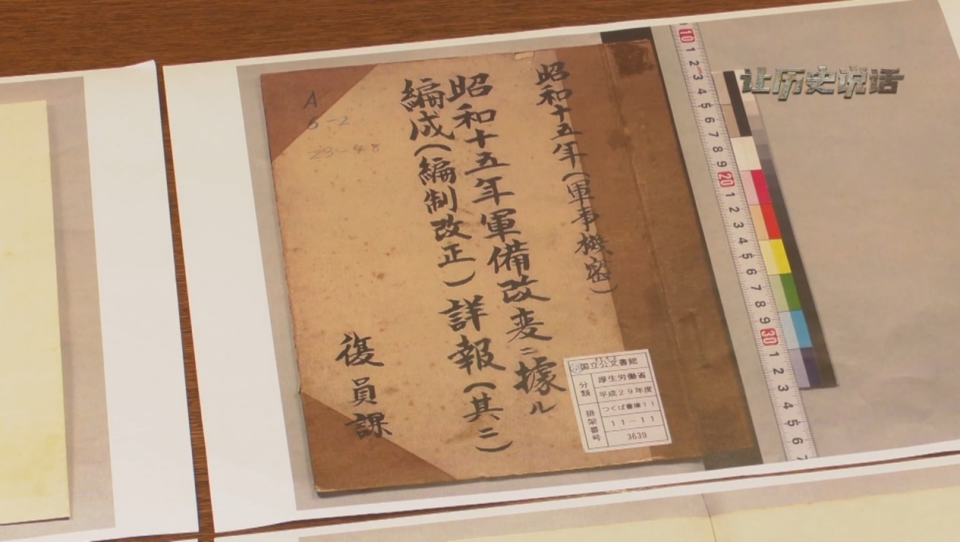 让历史说话
昭和十五年（軍事機密）
昭和十五年軍備改変ニ據ル
編成（編制改正）詳報（其二）
復員課
A
5-2
23-48
国立公文書館
分類
厚生労働省
平成29年度
排架番号
つくば書庫11
11-11
3639
10
1
2
3
4
5
6
7
8
9
20
1
2
3
4
5
6
7
8
9
30
1
2
3
4
5
6